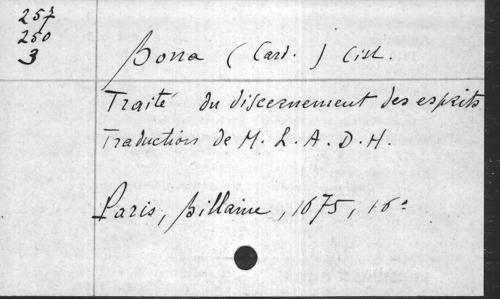 257
250
3
Bona (Card.) Cist.
Traité du discernement des esprits
Traduction de M. L. A. D. H.
Paris, Billaine, 1675, 16°